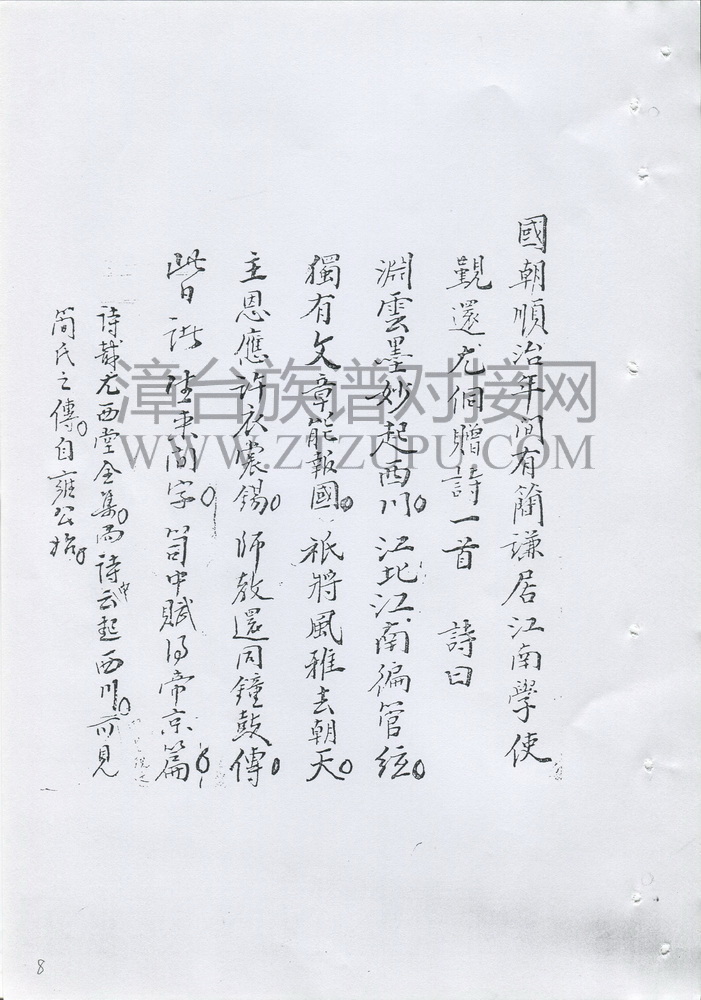 國朝順治年間有簡謙居江南學使
覲還尤侗贈詩一首　詩曰
淵雲墨妙起西川。江北江南徧管絃。
獨有文章能報國。祇將風雅去朝天。
主恩應許衣裳錫。師教還同鐘鼓傳。
皆 生平問字。笥中賦得帝京篇。
詩載尤西堂全集。而詩中云起西川。可見
簡氏之傳。自雍公始。
漳台族谱对接网
WWW.ZTZUPU.COM
8